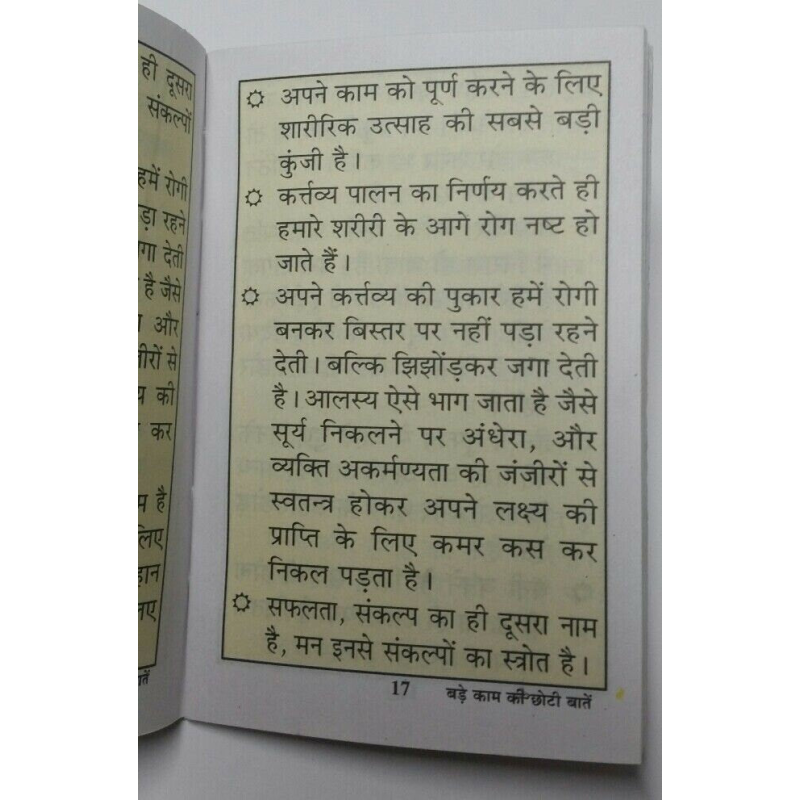 ही दूसरा
संकल्पों
हमें रोगी
ड़ा रहने
गा देती
है जैसे
और
जीरों से
य की
कर
म है
लिए
हान
लए
ातें
अपने काम को पूर्ण करने के लिए
शारीरिक उत्साह की सबसे बड़ी
कुंजी है।
कर्त्तव्य पालन का निर्णय करते ही
हमारे शरीरी के आगे रोग नष्ट हो
जाते हैं।
अपने कर्त्तव्य की पुकार हमें रोगी
बनकर बिस्तर पर नहीं पड़ा रहने
देती। बल्कि झिझोंड़कर जगा देती
है। आलस्य ऐसे भाग जाता है जैसे
सूर्य निकलने पर अंधेरा, और
व्यक्ति अकर्मण्यता की जंजीरों से
स्वतन्त्र होकर अपने लक्ष्य की
प्राप्ति के लिए कमर कस कर
निकल पड़ता है।
सफलता, संकल्प का ही दूसरा नाम
है, मन इनसे संकल्पों का स्त्रोत है।
17 बड़े काम की छोटी बातें